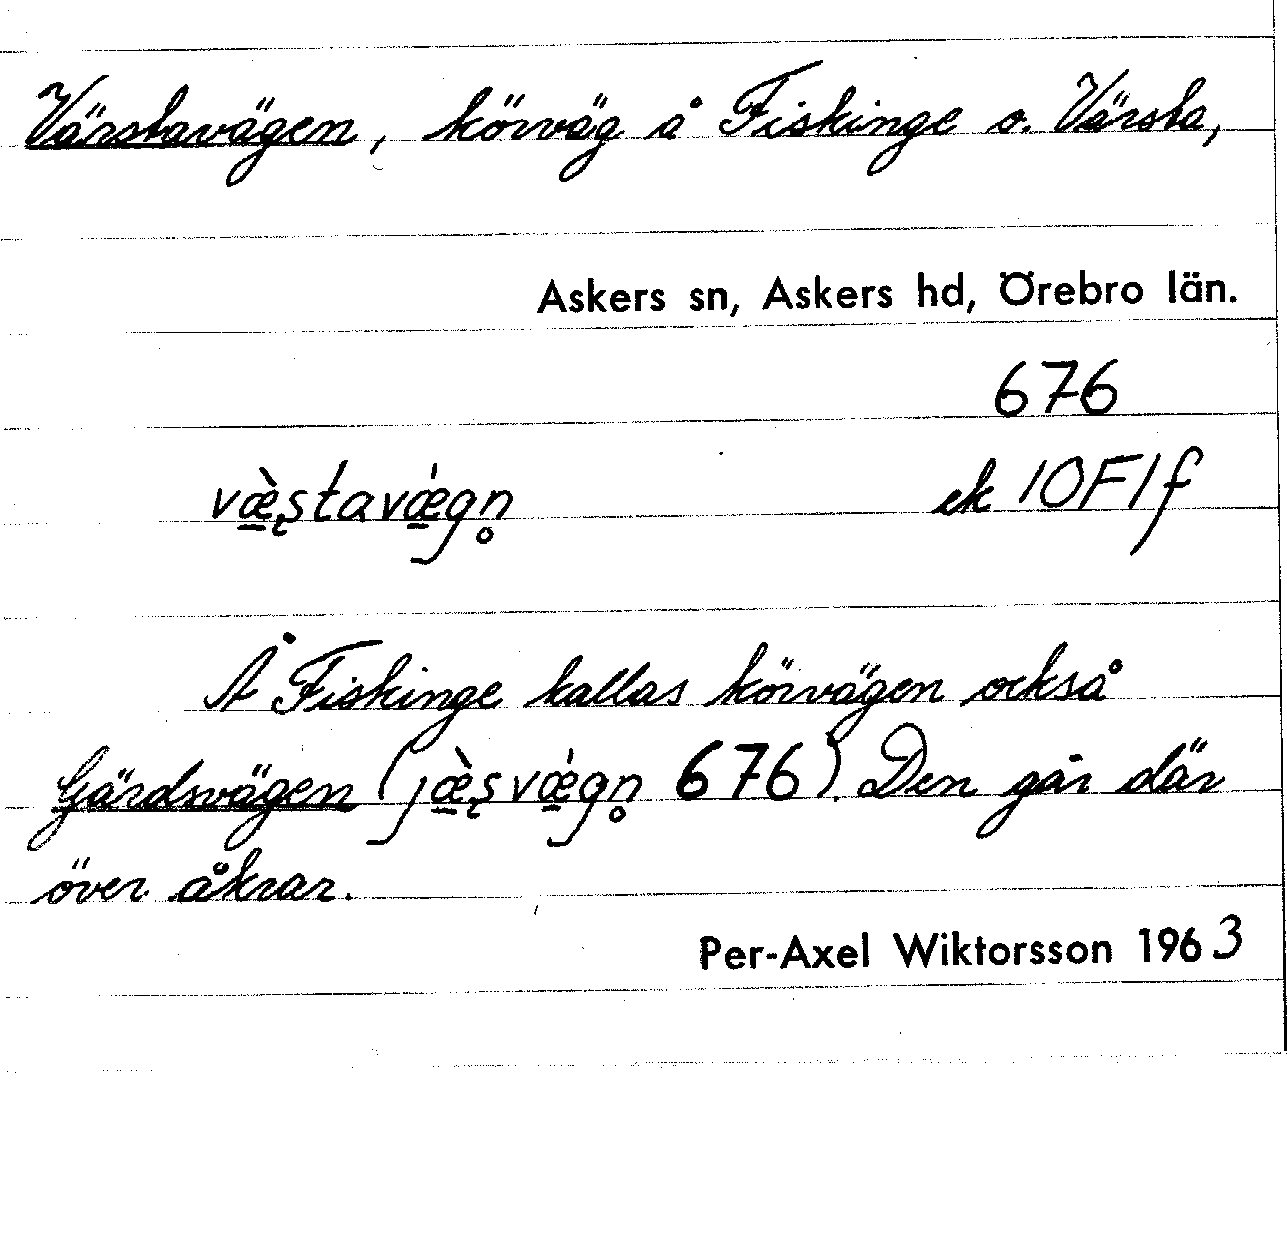 Värstavägen, körväg å Fiskinge o. Värsta,
Askers sn, Askers hd, Örebro län.
676
væ̠̀ʂtavǽ̠gn̥ ek 10F1f
Å Fiskinge kallas körvägen också
Gärdsvägen (jæ̠̀ʂvǽ̠gn̥ 676). Den går där
över åkrar.
Per-Axel Wiktorsson 1963